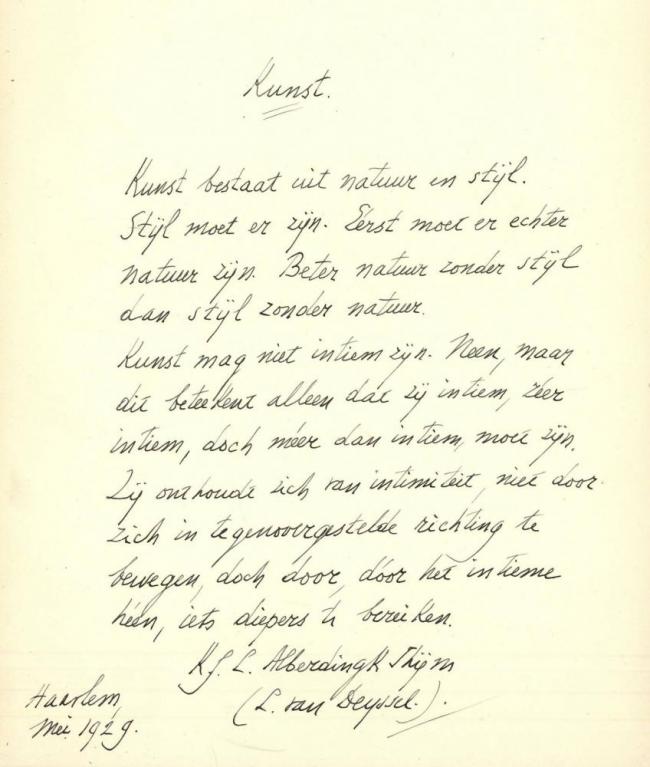 Kunst.
Kunst bestaat uit natuur en stijl.
Stijl moet er zijn. Eérst moet er echter
natuur zijn. Beter natuur zonder stijl
dan stijl zonder natuur.
Kunst mag niet intiem zijn. Neen, maar
dit beteekent alleen dat zij intiem, zéer
intiem, doch méer dan intiem, moet zijn.
Zij onthoudt zich van intimiteit, niet door
zich in tegenovergestelde richting te
bewegen, doch door, dóor het intieme
héen, iets diepers te bereiken.
K. J. L. Alberdingk Thijm
(L. van Deyssel.).
Haarlem,
Mei 1929.